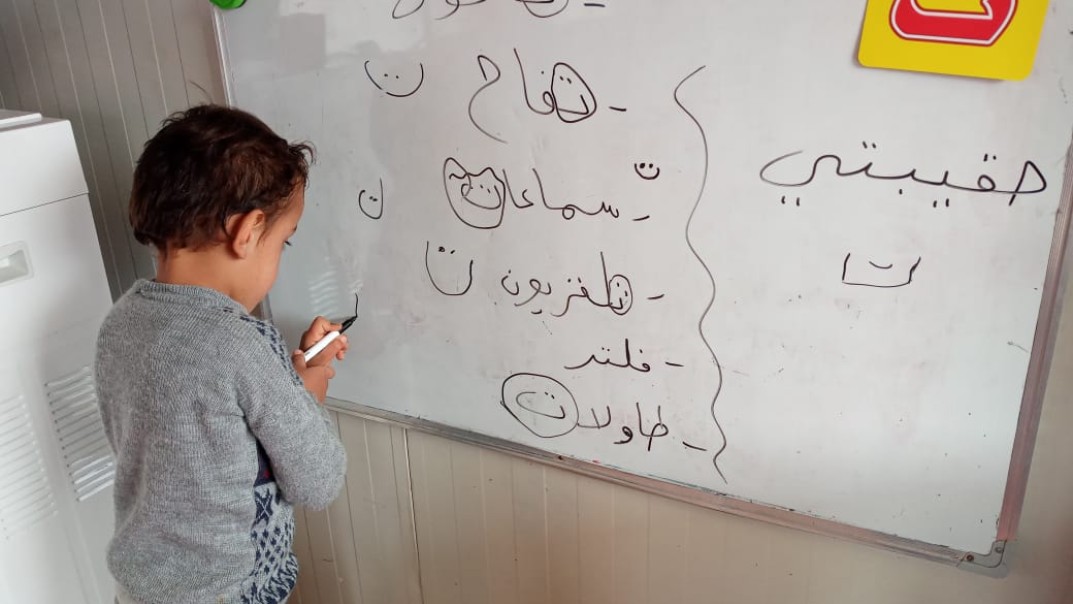 حقيبتي
ت
- تفاح ت
- سماعات ت ت
- تلفزيون ت
- فلتر
- طاولات